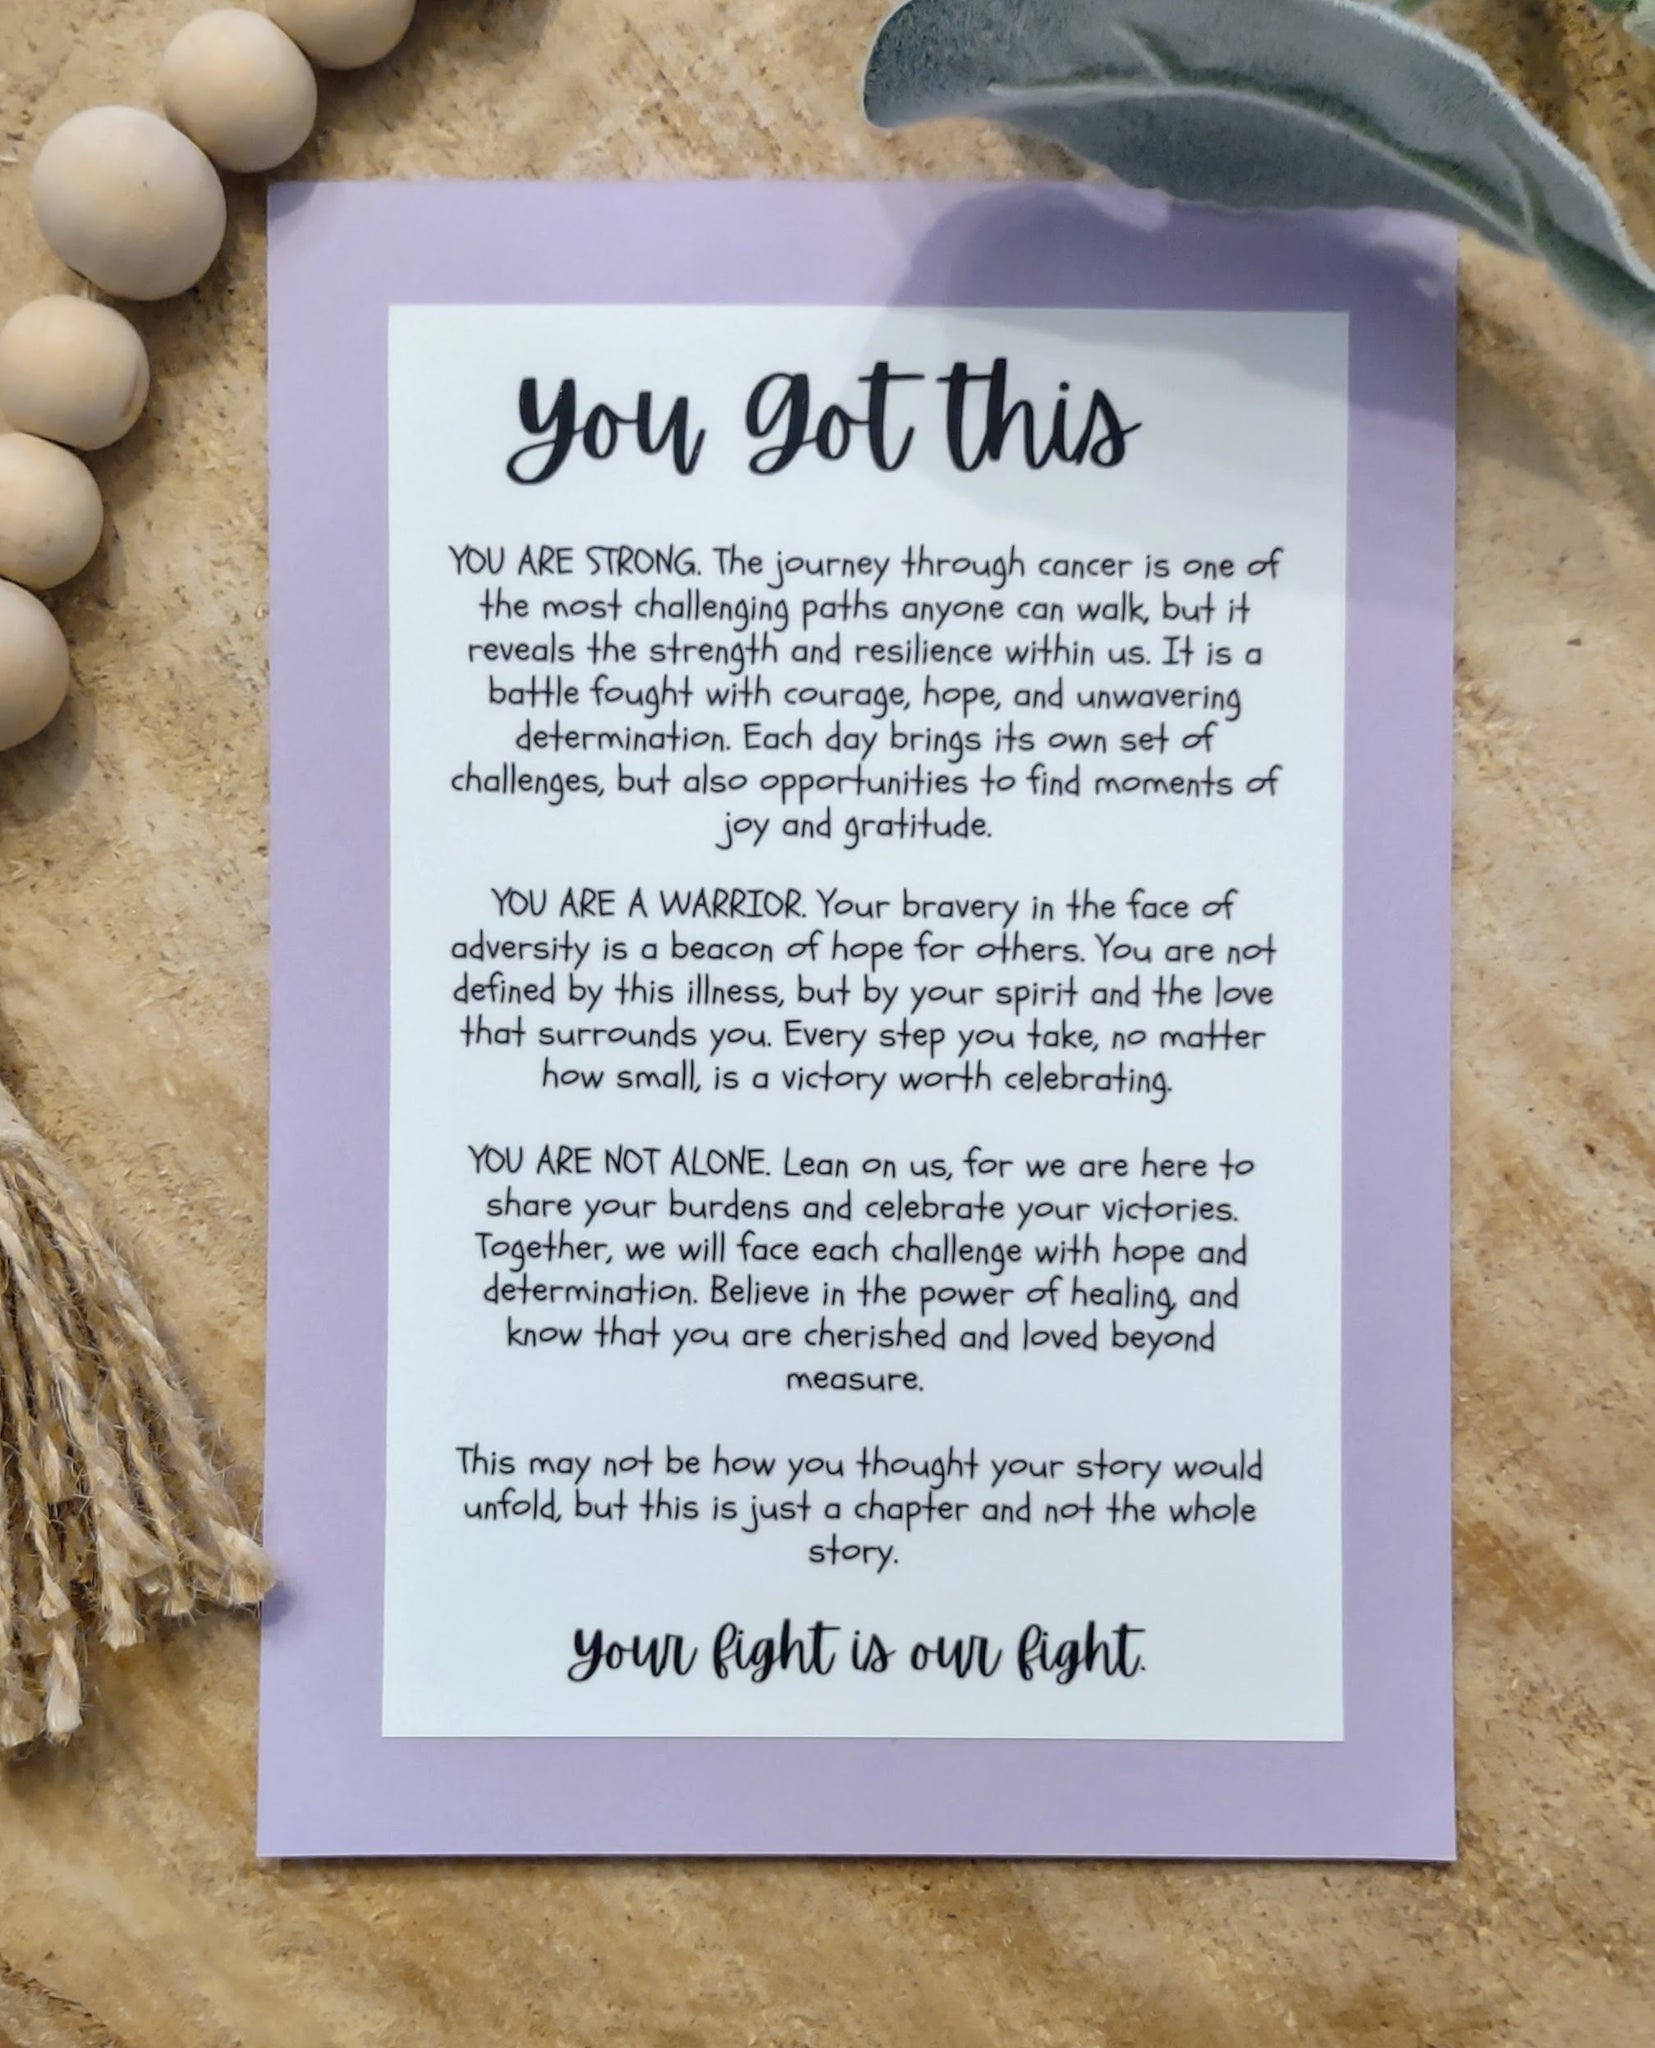 you got this
YOU ARE STRONG. The journey through cancer is one of
the most challenging paths anyone can walk, but it
reveals the strength and resilience within us. It is a
battle fought with courage, hope, and unwavering
determination. Each day brings its own set of
challenges, but also opportunities to find moments of
joy and gratitude.
YOU ARE A WARRIOR. Your bravery in the face of
adversity is a beacon of hope for others. You are not
defined by this illness, but by your spirit and the love
that surrounds you. Every step you take, no matter
how small, is a victory worth celebrating.
YOU ARE NOT ALONE. Lean on us, for we are here to
share your burdens and celebrate your victories.
Together, we will face each challenge with hope and
determination. Believe in the power of healing, and
know that you are cherished and loved beyond
measure.
This may not be how you thought your story would
unfold, but this is just a chapter and not the whole
story.
your fight is our fight.